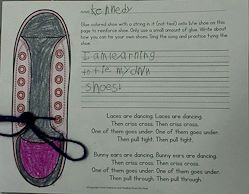 Kennedy
Glue colored shoe with a string in it (not tied) onto b/w shoe on this
page to reinforce shoe. Only use a small amount of glue. Write about
how you can tie your own shoes. Sing the song and practice tying the
shoe.
I am learning
to tie my own
shoes!
Laces are dancing. Laces are dancing.
Then criss cross. Then criss cross.
One of them goes under. One of them goes under.
Then pull tight. Then pull tight.
Bunny ears are dancing. Bunny ears are dancing.
Then criss cross. Then criss cross.
One of them goes under. One of them goes under.
Then pull through. Then pull through.